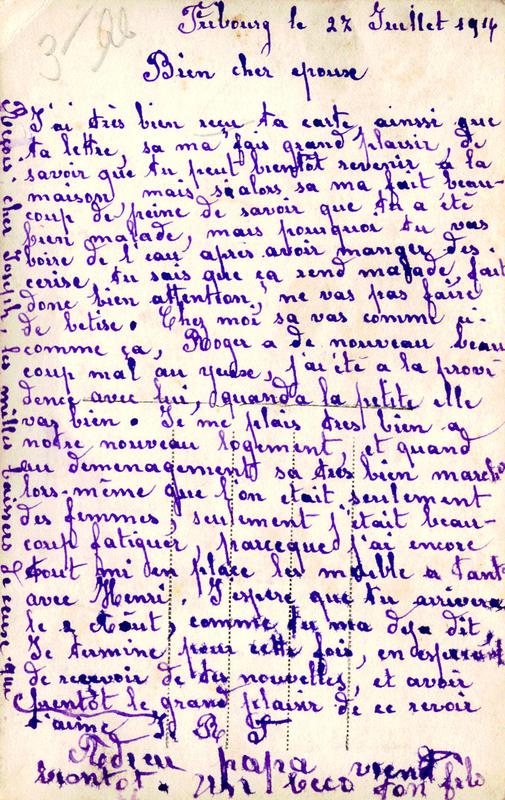 Fribourg le 27 Juillet 191
Bien cher epoux
J'ai très bien reçu ta carte, ainssi que
ta lettre, sa ma fais grand plaisir, de
savoir que tu peut bientôt revenir a la
maison, mais alors sa ma fait beau-
coup de peine de savoir que tu a été
bien malade, mais pourquoi tu vas
boire de l'eau après avoir manger des
cerise, tu sais que ça rend malade, fait
donc bien attention, ne vas pas faire
de betise. Chez moi sa vas comme ci-
comme ça, Roger a de nouveau beau
coup mal au yeux, j'ai été a la provi
dence avec lui, quand a la petite elle
vas bien. Je me plais très bien a
notre nouveau logement, et quand
au demenagement sa très bien marché
lors-même que l'on etait seulement
des femmes, seulement j'etait beau-
coup fatiguer, parceque j'ai encore
tout mi en place les meuble a tant
avec Henri. J'espère que tu arrivera
le 2 Août, comme tu ma deja dit,
Je termine pour cette fois, en esperant
de recevoir de tes nouvelles, et avoir
bientôt le grand plaisir de ce revoir
t'aime J R F
Adieu papa vient
bientot. un beco ton fils
Reçois cher Joseph, les milles baisers de ceux qui
3/